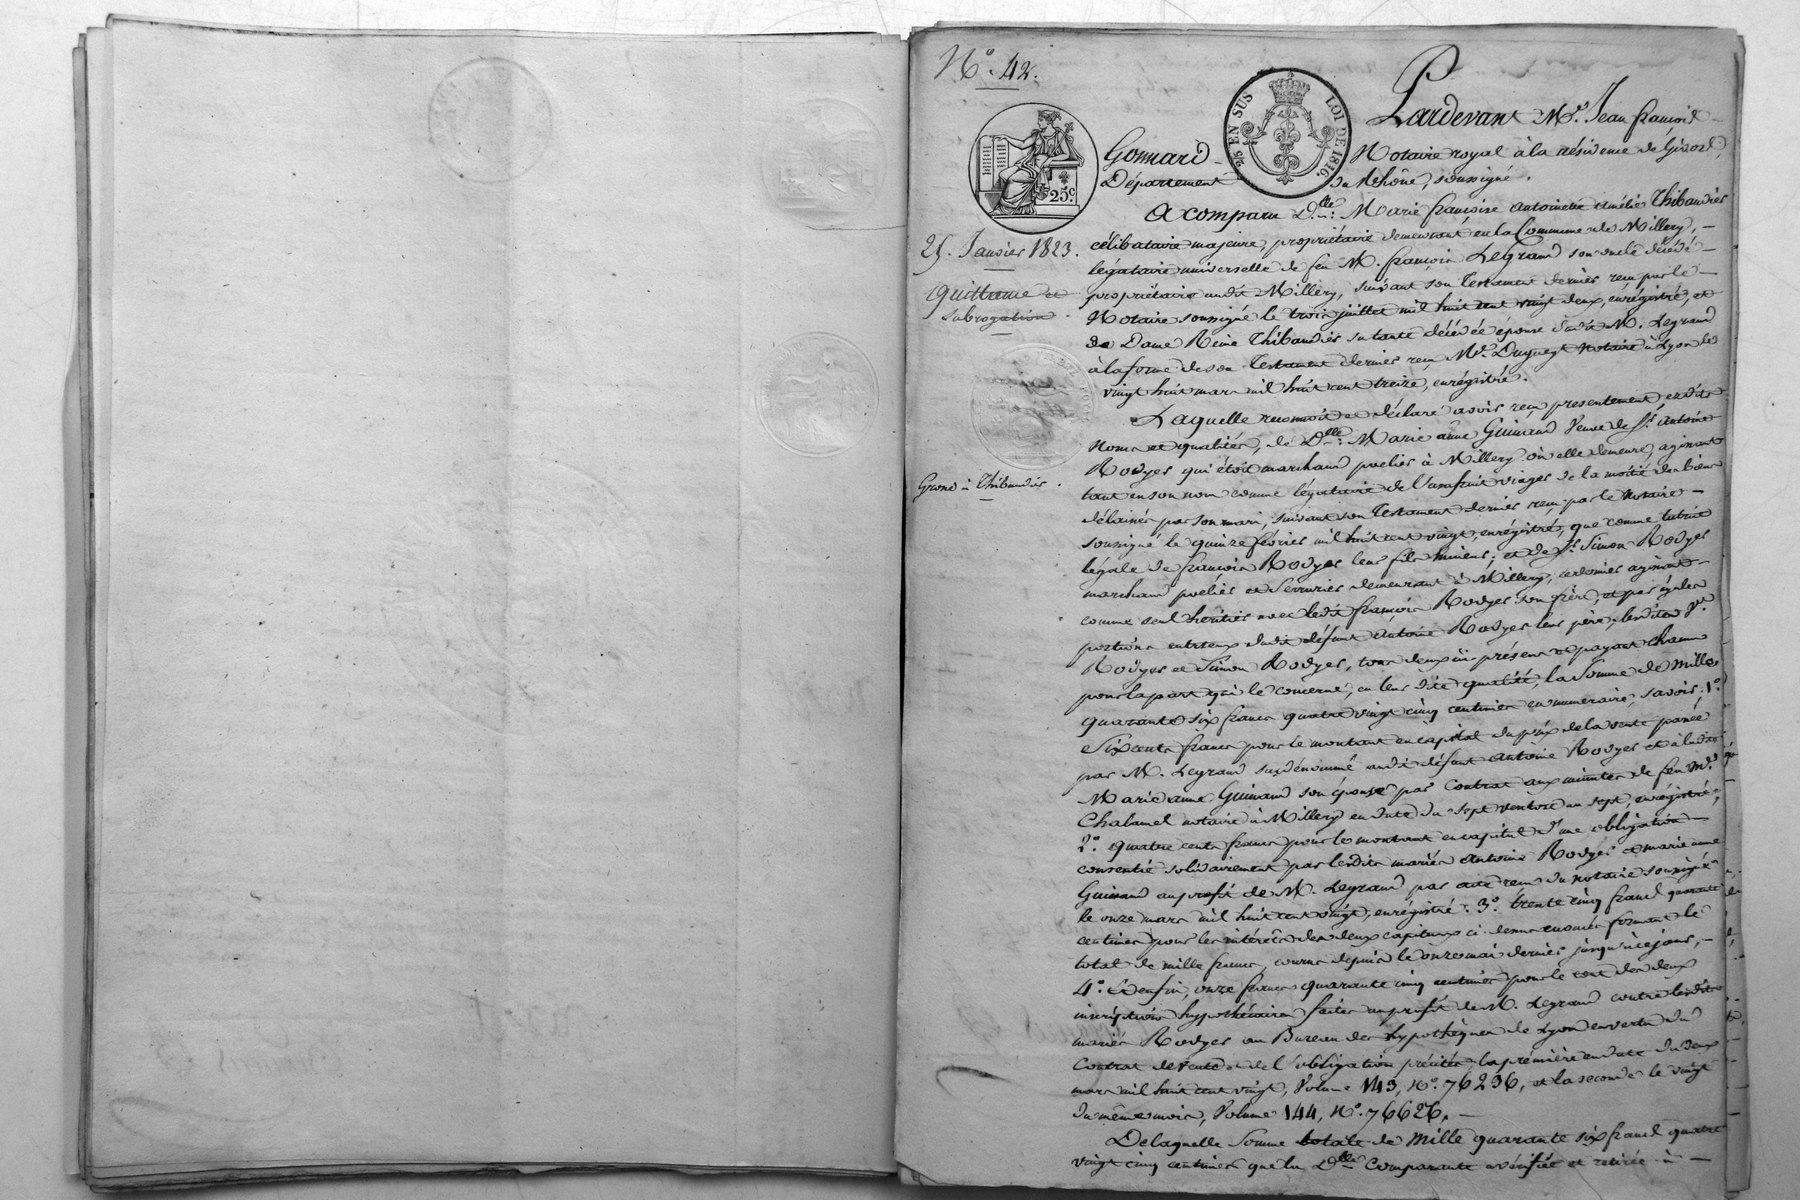 N.° 42.
2/5 EN SUS LOI DE 1816.
25.c
Pardevant M.e Jean françois
Gonnard Notaire royal à la résidence de Givors,
Département du Rhône, soussigné.
A comparu D.lle Marie françoise antoinette amélie Thibaudier
25. Janvier 1823.
célibataire majeure, propriétaire demeurant en la Commune de Millery,
légataire universelle de feu M. françois Legrand son oncle décédé
Quittance et
subrogation.
propriétaire audit Millery, suivant son Testament dernier reçu par le
Notaire soussigné le trois juillet mil huit cent vingt deux, enrégistré, et
de Dame Reine Thibaudier sa tante décédée épouse dudit M. Legrand
à la forme de son Testament dernier reçu M.e notaire à Lyon le
vingt huit mars mil huit cent treize, enrégistré.
Laquelle reconnoit et déclare avoir reçu présentement, esdits
noms et qualités, de D.lle Marie anne Guinand Veuve de S.r antoine
Rodyer qui étoit marchand poelier à Millery où elle demeure, agissant
Grosse à Thibaudier.
tant en son nom comme légataire de l'usufruit viager de la moitié des biens
délaissés par son mari, suivant son Testament dernier reçu par le Notaire
soussigné le quinze février mil huit cent vingt, enrégistré, que comme tutrice
légale de françois Rodyer leur fils mineur; et de S.r Simon Rodyer
marchand poelier et Serrurier demeurant à Millery, ce dernier agissant
comme seul héritier avec ledit françois Rodyer son frère, et par égales
portions entr'eux dudit défunt antoine Rodyer leur père; lesdits V.e
Rodyer et Simon Rodyer, tous deux ici présens et payant chacun
pour la part qui le concerne, en leur dite qualité, la Somme de mille
quarante six francs quatre vingt cinq centimes en numeraire, savoir; 1.°
Six cents francs pour le montant en capital du prix de la vente passée
par M. Legrand susdénommé audit défunt antoine Rodyer et à ladite
Marie anne Guinand son épouse par Contrat aux minutes de feu M.e
Chalamel notaire à Millery en date du sept ventôse an sept, enrégistré;
2.° quatre cents francs pour le montant en capital d'une obligation
consentie solidairement par lesdits mariés antoine Rodyer et marie anne
Guinand au profit de M. Legrand par acte reçu du notaire soussigné
le onze mars mil huit cent vingt, enrégistré; 3.° trente cinq francs quarante
centimes pour les intérêts des deux capitaux ci-dessus énoncés formant le
total de mille francs, courus depuis le onze mai dernier jusqu'à ce jour,
4.° Et enfin, onze francs quarante cinq centimes pour le coût des deux
inscriptions hypothécaires faites au profit de M. Legrand contre lesdits
mariés Rodyer au Bureau des hypothèques de Lyon en vertu du
Contrat de vente et de l'obligation précités, la première en date du deux
mars mil huit cent vingt, Volume 143, N.° 76236, et la seconde le vingt
du même mois, Volume 144, N.° 76626.
De laquelle Somme totale de mille quarante six francs quatre
vingt cinq centimes que la D.lle Comparante a vérifiée et retirée à